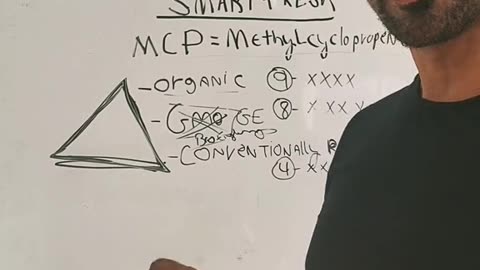 SMARTFRESH
MCP = MethyLcyclopropen
- ORGANIC ⑨- XXXX
- GMO GE ⑧- X XX X
- CONVENTIONALLY
④- XX